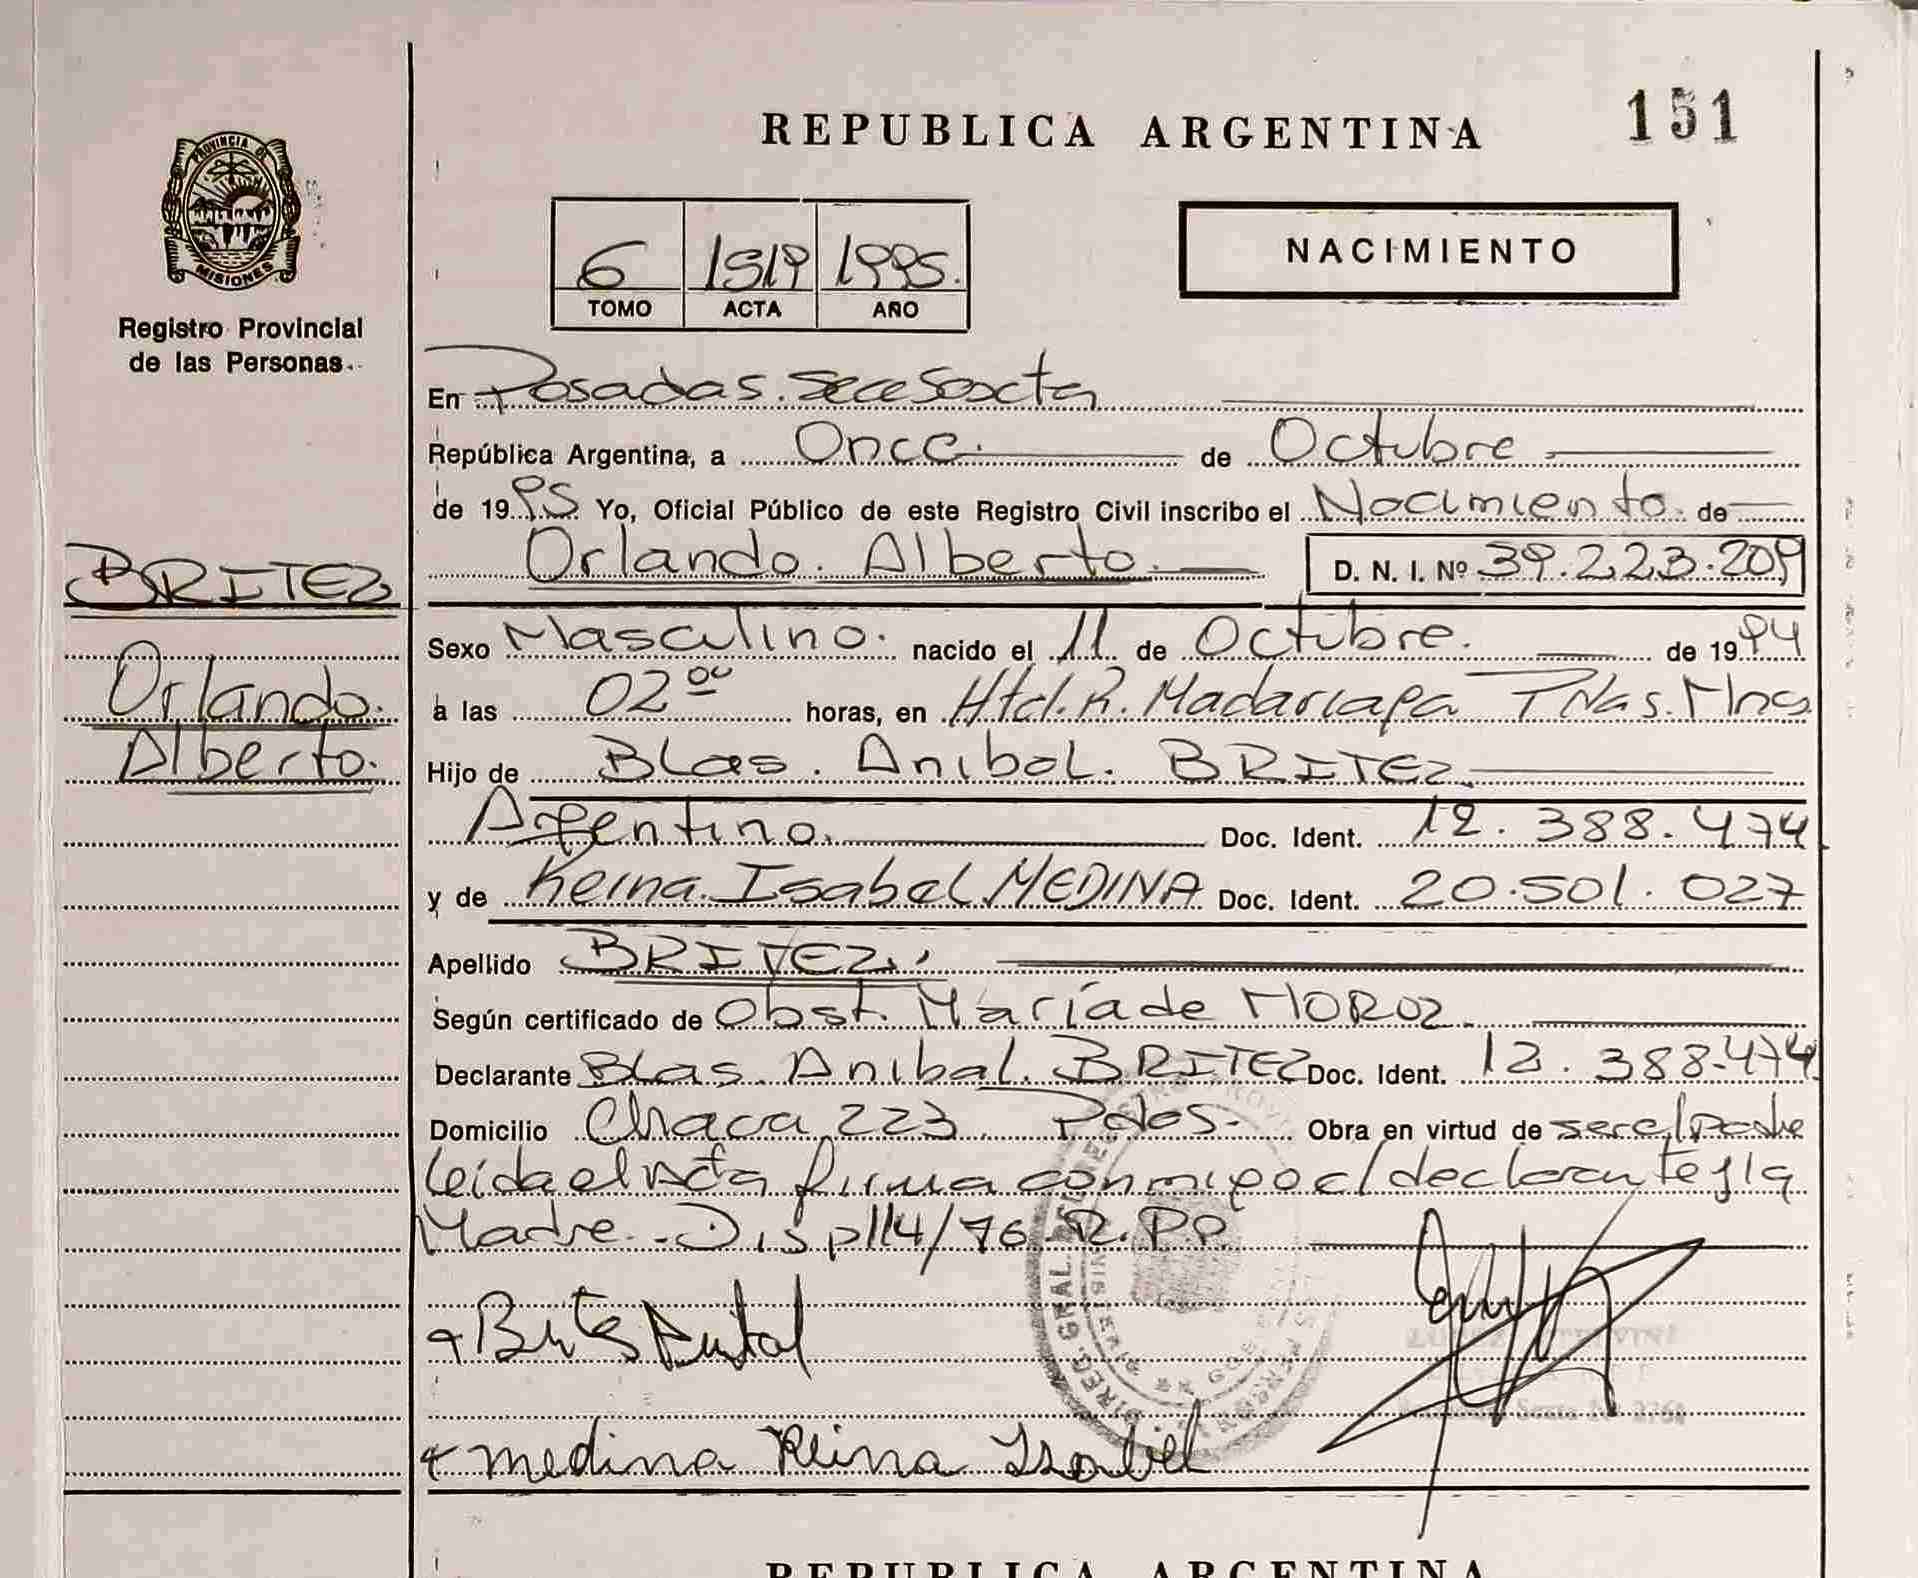 REPUBLICA ARGENTINA
151
PROVINCIA DE
MISIONES
Registro Provincial
de las Personas
6 1519 1995.
TOMO ACTA AÑO
NACIMIENTO
En Posadas. Secc Sexta
República Argentina, a Once. de Octubre
de 1995 Yo, Oficial Público de este Registro Civil inscribo el Nacimiento. de
Orlando. Alberto. D. N. I. Nº 39.223.209
BRITEZ
Orlando.
Alberto.
Sexo Masculino. nacido el 11 de Octubre. de 1994
a las 02 00 horas, en Htal. R. Madariaga Pdas. Mnes
Hijo de Blas. Anibal. BRITEZ
Argentino. Doc. Ident. 12.388.474
y de Reina. Isabel MEDINA Doc. Ident. 20.501.027
Apellido BRITEZ.
Según certificado de Obst. María de MOROZ
Declarante Blas. Anibal. BRITEZ Doc. Ident. 12.388.474
Domicilio Chaca 223 Pdas. Obra en virtud de ser el padre
leida el Acta firma conmigo el declarante y la
Madre. Disp 114/76 R.P.P
Britez Anibal
DIREG. GRAL. DEL REGISTRO PROV
MISIONES
medina Reina Isabel
REPUBLICA ARGENTINA